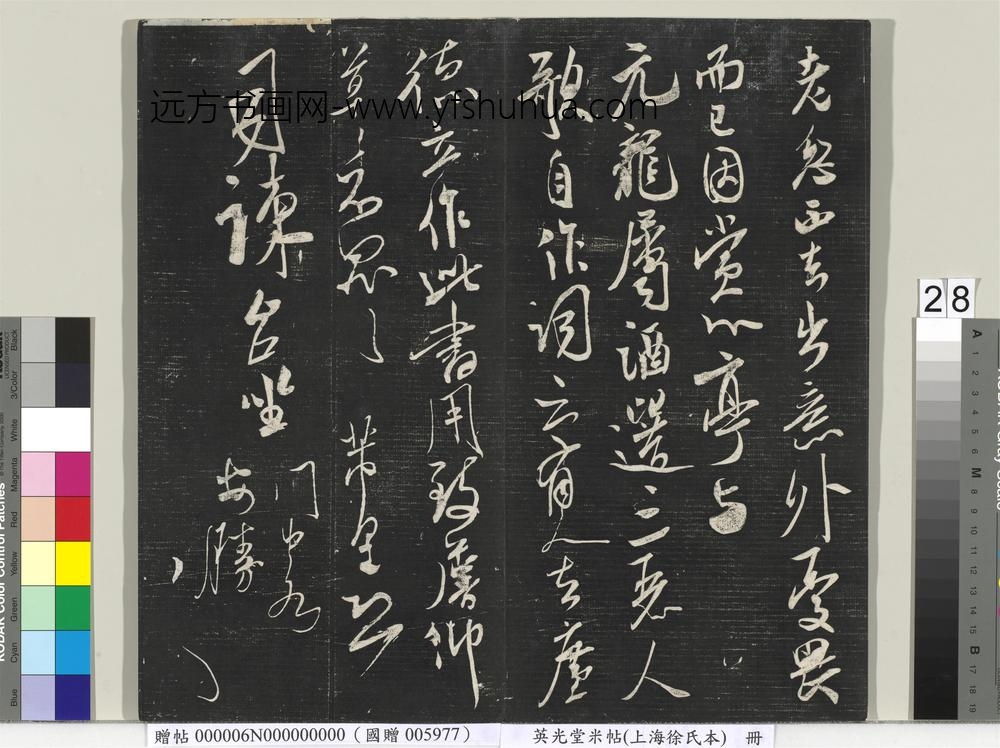 老西去出意外憂畏
而已因賞心亭与
元龍屬酒三人
歌自作詞云有人去塵
立作此書用致仰
草々不罪 芾皇恐
司諫台坐
門中各
安勝
远方书画网-www.yfshuhua.com
28
贈帖 000006N000000000 (國贈 005977)
英光堂米帖(上海徐氏本) 冊
KODAK Color Control Patches
Blue Cyan Green Yellow Red Magenta White 3/Color Black
A 1 2 3 4 5 6 M 8 9 10 11 12 13 14 15 B 17 18 19